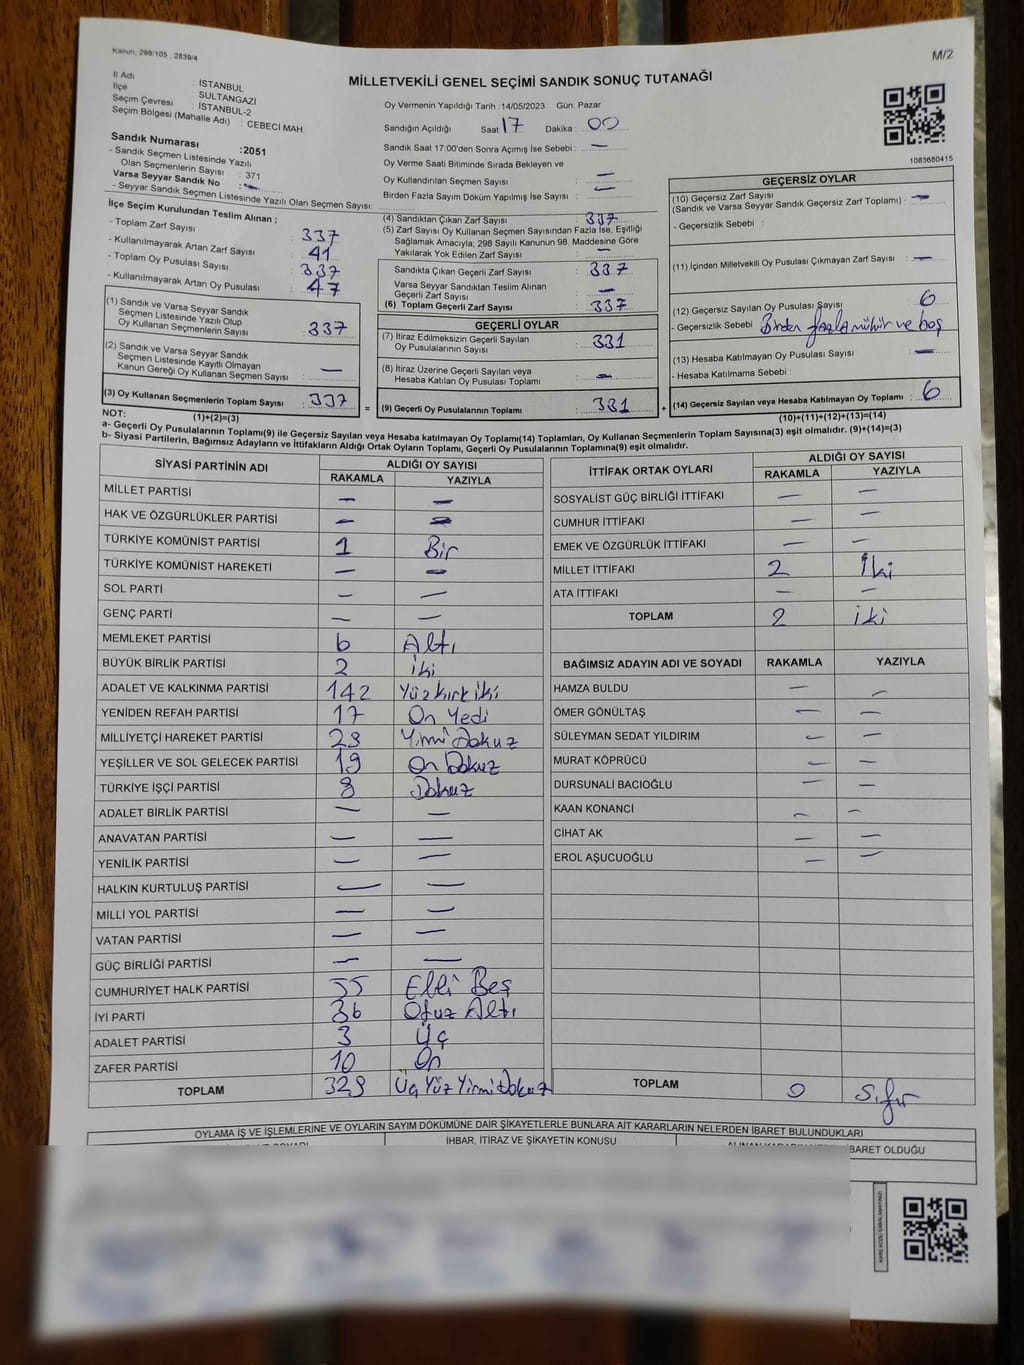 Kanun, 298/105 , 2839/4
M/2
MİLLETVEKİLİ GENEL SEÇİMİ SANDIK SONUÇ TUTANAĞI
İl Adı : İSTANBUL
İlçe : SULTANGAZİ
Seçim Çevresi : İSTANBUL-2
Seçim Bölgesi (Mahalle Adı) : CEBECİ MAH.
Sandık Numarası :2051
- Sandık Seçmen Listesinde Yazılı
Olan Seçmenlerin Sayısı : 371
Varsa Seyyar Sandık No : -
- Seyyar Sandık Seçmen Listesinde Yazılı Olan Seçmen Sayısı:
Oy Vermenin Yapıldığı Tarih : 14/05/2023 Gün: Pazar
Sandığın Açıldığı Saat: 17 Dakika : 00
Sandık Saat 17:00'den Sonra Açımış İse Sebebi : -
Oy Verme Saati Bitiminde Sırada Bekleyen ve
Oy Kullandırılan Seçmen Sayısı : -
Birden Fazla Sayım Döküm Yapılmış İse Sayısı : -
1083680415
İlçe Seçim Kurulundan Teslim Alınan ;
- Toplam Zarf Sayısı : 337
- Kullanılmayarak Artan Zarf Sayısı : 41
- Toplam Oy Pusulası Sayısı : 337
- Kullanılmayarak Artan Oy Pusulası : 47
(1) Sandık ve Varsa Seyyar Sandık
Seçmen Listesinde Yazılı Olup
Oy Kullanan Seçmenlerin Sayısı : 337
(2) Sandık ve Varsa Seyyar Sandık
Seçmen Listesinde Kayıtlı Olmayan
Kanun Gereği Oy Kullanan Seçmen Sayısı : -
(3) Oy Kullanan Seçmenlerin Toplam Sayısı : 337
(1)+(2)=(3)
(4) Sandıktan Çıkan Zarf Sayısı : 337
(5) Zarf Sayısı Oy Kullanan Seçmen Sayısından Fazla İse, Eşitliği
Sağlamak Amacıyla; 298 Sayılı Kanunun 98. Maddesine Göre
Yakılarak Yok Edilen Zarf Sayısı : -
Sandıkta Çıkan Geçerli Zarf Sayısı : 337
Varsa Seyyar Sandıktan Teslim Alınan
Geçerli Zarf Sayısı : -
(6) Toplam Geçerli Zarf Sayısı : 337
GEÇERLİ OYLAR
(7) İtiraz Edilmeksizin Geçerli Sayılan
Oy Pusulalarının Sayısı : 331
(8) İtiraz Üzerine Geçerli Sayılan veya
Hesaba Katılan Oy Pusulası Toplamı : -
= (9) Geçerli Oy Pusulalarının Toplamı : 331 +
GEÇERSİZ OYLAR
(10) Geçersiz Zarf Sayısı
(Sandık ve Varsa Seyyar Sandık Geçersiz Zarf Toplamı) : -
- Geçersizlik Sebebi :
(11) İçinden Milletvekili Oy Pusulası Çıkmayan Zarf Sayısı : -
(12) Geçersiz Sayılan Oy Pusulası Sayısı : 6
- Geçersizlik Sebebi : Birden fazla mühür ve boş
(13) Hesaba Katılmayan Oy Pusulası Sayısı : -
- Hesaba Katılmama Sebebi :
(14) Geçersiz Sayılan veya Hesaba Katılmayan Oy Toplamı : 6
(10)+(11)+(12)+(13)=(14)
NOT:
a- Geçerli Oy Pusulalarının Toplamı(9) ile Geçersiz Sayılan veya Hesaba katılmayan Oy Toplamı(14) Toplamları, Oy Kullanan Seçmenlerin Toplam Sayısına(3) eşit olmalıdır. (9)+(14)=(3)
b- Siyasi Partilerin, Bağımsız Adayların ve İttifakların Aldığı Ortak Oyların Toplamı, Geçerli Oy Pusulalarının Toplamına(9) eşit olmalıdır.
SİYASİ PARTİNİN ADI ALDIĞI OY SAYISI
RAKAMLA YAZIYLA
MİLLET PARTİSİ - -
HAK VE ÖZGÜRLÜKLER PARTİSİ - -
TÜRKİYE KOMÜNİST PARTİSİ 1 Bir
TÜRKİYE KOMÜNİST HAREKETİ - -
SOL PARTİ - -
GENÇ PARTİ - -
MEMLEKET PARTİSİ 6 Altı
BÜYÜK BİRLİK PARTİSİ 2 iki
ADALET VE KALKINMA PARTİSİ 142 Yüzkırkiki
YENİDEN REFAH PARTİSİ 17 On Yedi
MİLLİYETÇİ HAREKET PARTİSİ 29 Yirmi Dokuz
YEŞİLLER VE SOL GELECEK PARTİSİ 19 On Dokuz
TÜRKİYE İŞÇİ PARTİSİ 9 Dokuz
ADALET BİRLİK PARTİSİ - -
ANAVATAN PARTİSİ - -
YENİLİK PARTİSİ - -
HALKIN KURTULUŞ PARTİSİ - -
MİLLİ YOL PARTİSİ - -
VATAN PARTİSİ - -
GÜÇ BİRLİĞİ PARTİSİ - -
CUMHURİYET HALK PARTİSİ 55 Elli Beş
İYİ PARTİ 36 Otuz Altı
ADALET PARTİSİ 3 Üç
ZAFER PARTİSİ 10 On
TOPLAM 329 Üç Yüz Yirmi Dokuz
İTTİFAK ORTAK OYLARI ALDIĞI OY SAYISI
RAKAMLA YAZIYLA
SOSYALİST GÜÇ BİRLİĞİ İTTİFAKI - -
CUMHUR İTTİFAKI - -
EMEK VE ÖZGÜRLÜK İTTİFAKI - -
MİLLET İTTİFAKI 2 İki
ATA İTTİFAKI - -
TOPLAM 2 iki
BAĞIMSIZ ADAYIN ADI VE SOYADI RAKAMLA YAZIYLA
HAMZA BULDU - -
ÖMER GÖNÜLTAŞ - -
SÜLEYMAN SEDAT YILDIRIM - -
MURAT KÖPRÜCÜ - -
DURSUNALİ BACIOĞLU - -
KAAN KONANCİ - -
CİHAT AK - -
EROL AŞUCUOĞLU - -
TOPLAM 0 Sıfır
OYLAMA İŞ VE İŞLEMLERİNE VE OYLARIN SAYIM DÖKÜMÜNE DAİR ŞİKAYETLERLE BUNLARA AİT KARARLARIN NELERDEN İBARET BULUNDUKLARI
İHBAR, İTİRAZ VE ŞİKAYETİN KONUSU
İBARET OLDUĞU